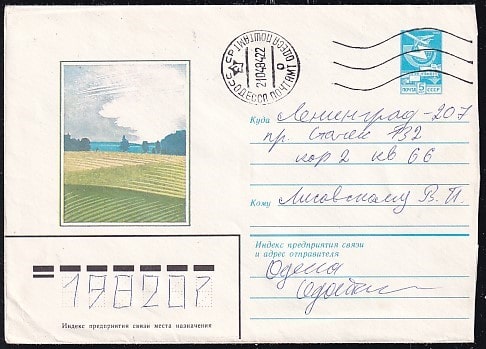 СССР ОДЕССА ПОЧТАМТ
ОДЕСА ПОШТАМТ
21048422
ПОЧТА 5 СССР
Куда Ленинград-207
пр. Стачек 132
кор 2 кв 66
Кому Лисовскому В. П.
Индекс предприятия связи
и адрес отправителя
Одесса
198207
Индекс предприятия связи места назначения